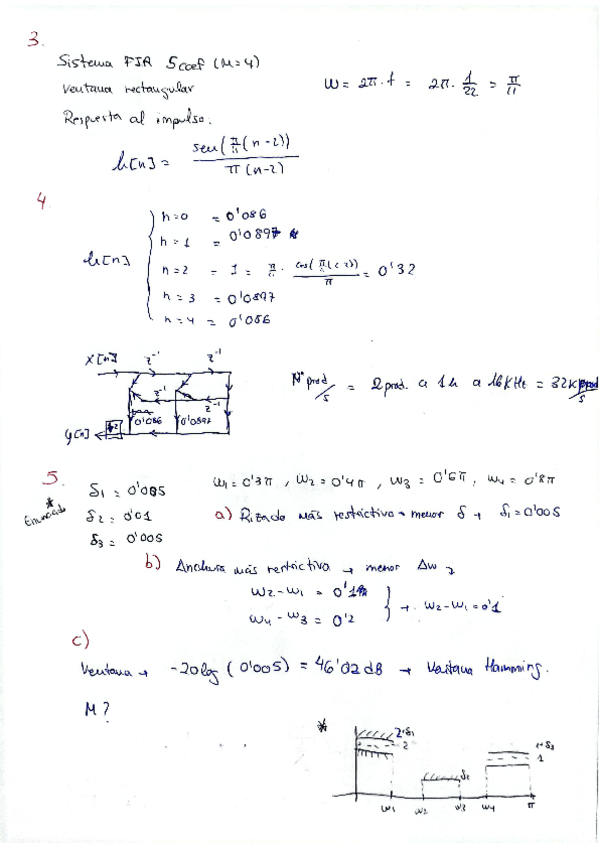 3.
Sistema FIR 5 coef (M=4)
Ventana rectangular
W = 2π · f = 2π · 1/22 = π/11
Respuesta al impulso.
h[n] = sen(π/11 (n-2)) / π(n-2)
4.
h[n]
n=0 = 0'086
n=1 = 0'0897
n=2 = 1 = π/11 · cos(π/11 (2-2)) / π = 0'32
n=3 = 0'0897
n=4 = 0'086
X[n] z⁻¹ z⁻¹
z⁻¹ z⁻¹
Y[n] 0'086 0'0897
Nº prod/s = 2 prod. a 16 KHz = 32K prod/s
5.
* Enunciado
δ1 = 0'005
δ2 = 0'01
δ3 = 0'005
W1 = 0'3π, W2 = 0'4π, W3 = 0'6π, W4 = 0'8π
a) Rizado más restrictivo → menor δ → δ1 = 0'005
b) Anchura más restrictiva → menor Δw
W2 - W1 = 0'1π
W4 - W3 = 0'2
→ W2 - W1 = 0'1
c)
Ventana → -20log (0'005) = 46'02 dB → Ventana Hamming.
M?
*
2+δ1
2
δ2
1+δ3
1
W1 W2 W3 W4 π